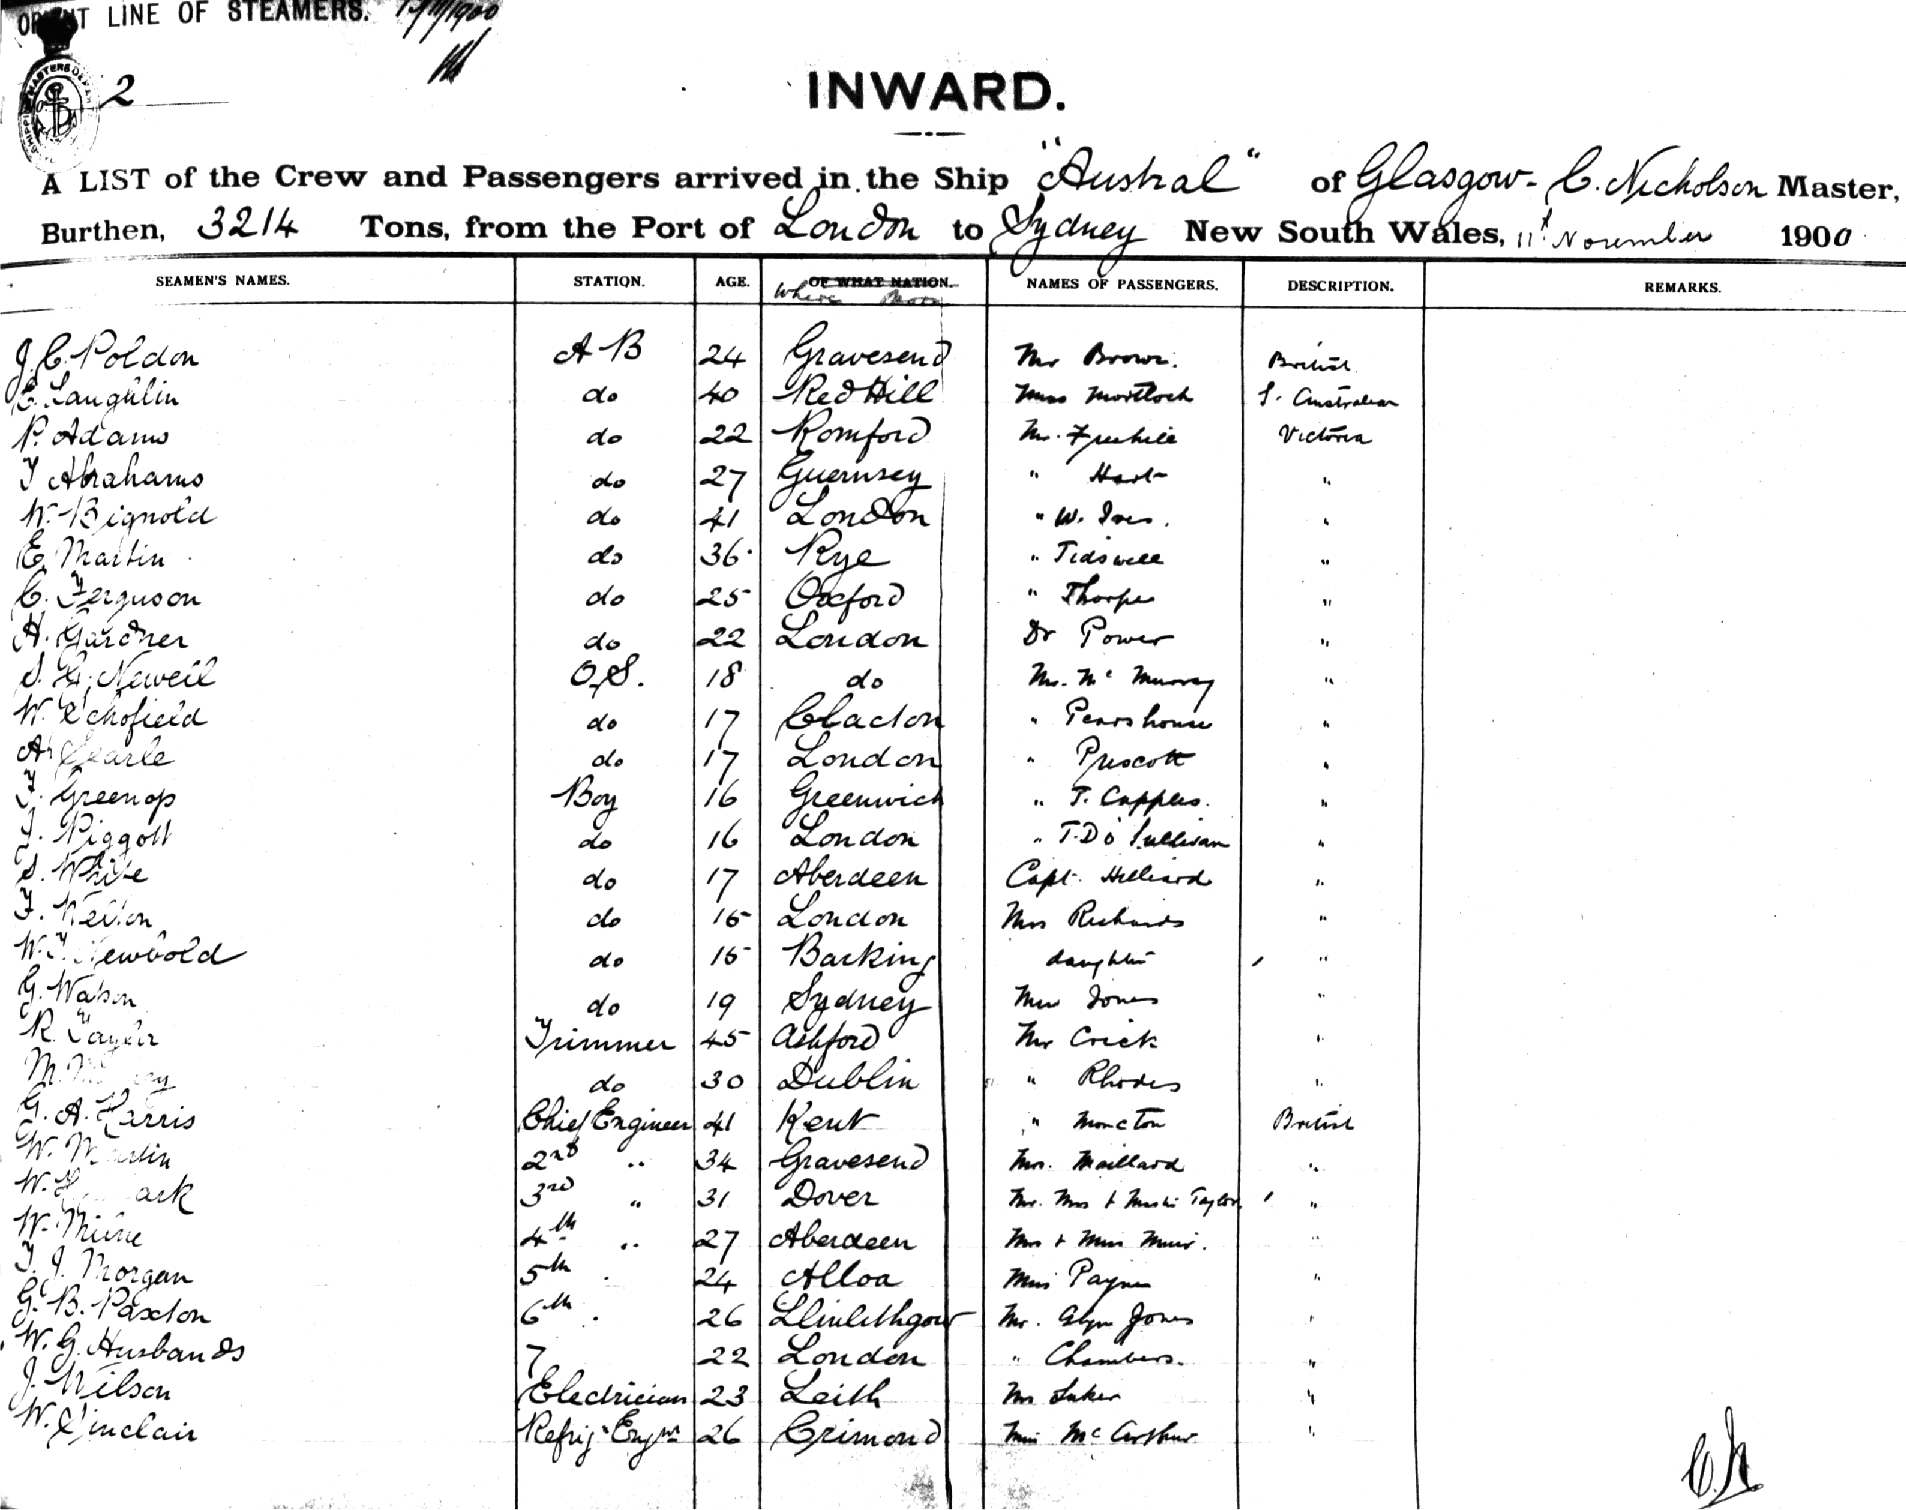 ORIENT LINE OF STEAMERS. 1900
2
INWARD.
A LIST of the Crew and Passengers arrived in the Ship "Austral" of Glasgow - C. Nicholson Master,
Burthen, 3214 Tons, from the Port of London to Sydney New South Wales, 11th November 1900
SEAMEN'S NAMES. STATION. AGE. OF WHAT NATION. Where Born NAMES OF PASSENGERS. DESCRIPTION. REMARKS.
J. C. Poldon A B 24 Gravesend Mr Brown. British
E. Laughlin do 40 Red Hill Miss Mortlock S. Australian
P. Adams do 22 Romford Mr. Freehill Victoria
T Abrahams do 27 Guernsey " Hart "
W. Bignold do 41 London " W. Ives. "
E. Martin do 36 Rye " Tidswell "
C. Ferguson do 25 Oxford " Thorpe "
H. Gardner do 22 London Dr Power "
S. G. Neweil O.S. 18 do Mr. Mc Murray "
W. Schofield do 17 Clacton " Pearshouse "
A. Searle do 17 London " Prescott "
F. Greenop Boy 16 Greenwich " T. Capples. "
J. Piggott do 16 London " T. D O'Sullivan "
S. White do 17 Aberdeen Capt. Hilliard "
F. Welton do 15 London Mrs Richards "
W. Newbold do 15 Barking daughter "
G. Watson do 19 Sydney Jones "
R. Taylor Trimmer 45 Ashford Mr Crick "
M. do 30 Dublin " Rhodes "
G. A. Harris Chief Engineer 41 Kent " Moncton British
W. Martin 2nd " 34 Gravesend Mrs. Maillard "
W. 3rd " 31 Dover Mr. Mrs & Taylor "
W. Milne 4th " 27 Aberdeen Mrs & Miss Muir. "
T. J. Morgan 5th " 24 Alloa Miss Payne "
G. B. Paxton 6th " 26 Llinlithgow Mr. Glyn Jones "
W. G. Husbands 7 22 London " Chambers. "
J. Wilson Electrician 23 Leith Mr Luker "
W. Sinclair Refrig. Engnr 26 Crimond Miss Mc Arthur "
C.N.